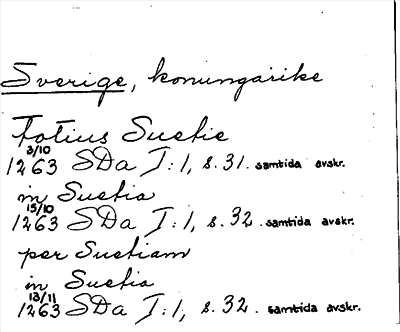 Sverige, konungarike
Totius Suetie
3/10
1263 SDa I:1, s. 31. samtida avskr.
in Suetia
15/10
1263 SDa I:1, s. 32. samtida avskr.
per Suetiam
in Suetia
13/11
1263 SDa I:1, s. 32. samtida avskr.